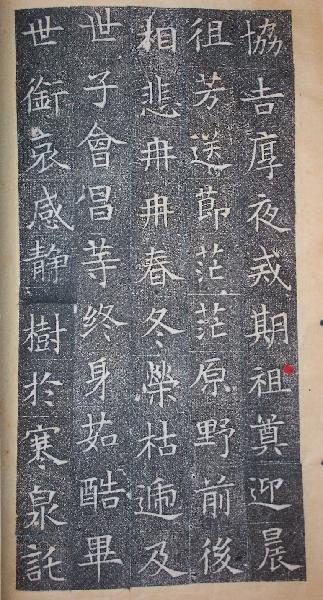 協吉厚夜戒期祖奠迎晨
徂芳送節茫茫原野前後
相悲冉冉春冬榮枯遞及
世子會昌等終身茹酷畢
世銜哀感静樹於寒泉託